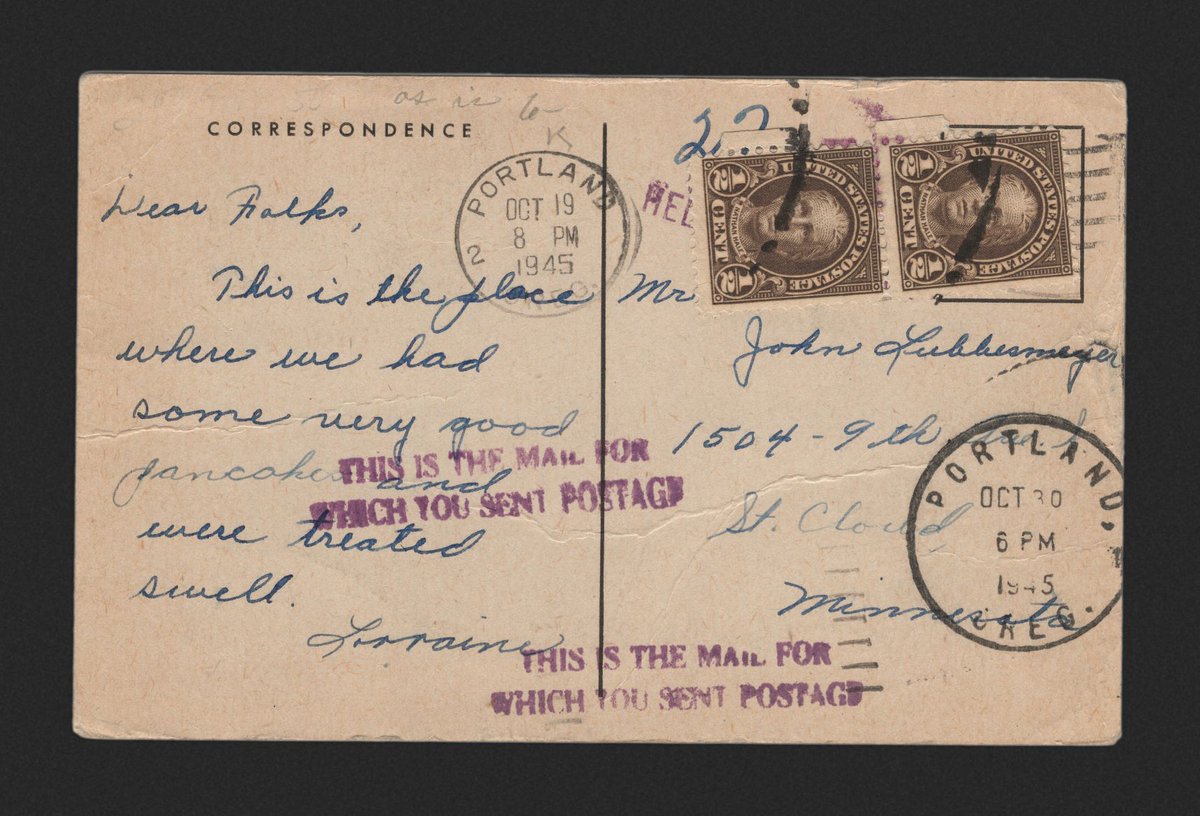 as is 6-
K
CORRESPONDENCE
PORTLAND
OCT 19
8 PM
1945
2
Dear Folks,
This is the place
where we had
some very good
pancakes and
were treated
swell.
Lorraine
THIS IS THE MAIL FOR
WHICH YOU SENT POSTAGE
HEL
UNITED STATES POSTAGE
½ CENT ½
UNITED STATES POSTAGE
½ CENT ½
Mr
John Lubbesmeyer
1504 - 9th
St. Cloud,
Minnesota
PORTLAND,
OCT 30
6 PM
1945
OREG.
THIS IS THE MAIL FOR
WHICH YOU SENT POSTAGE